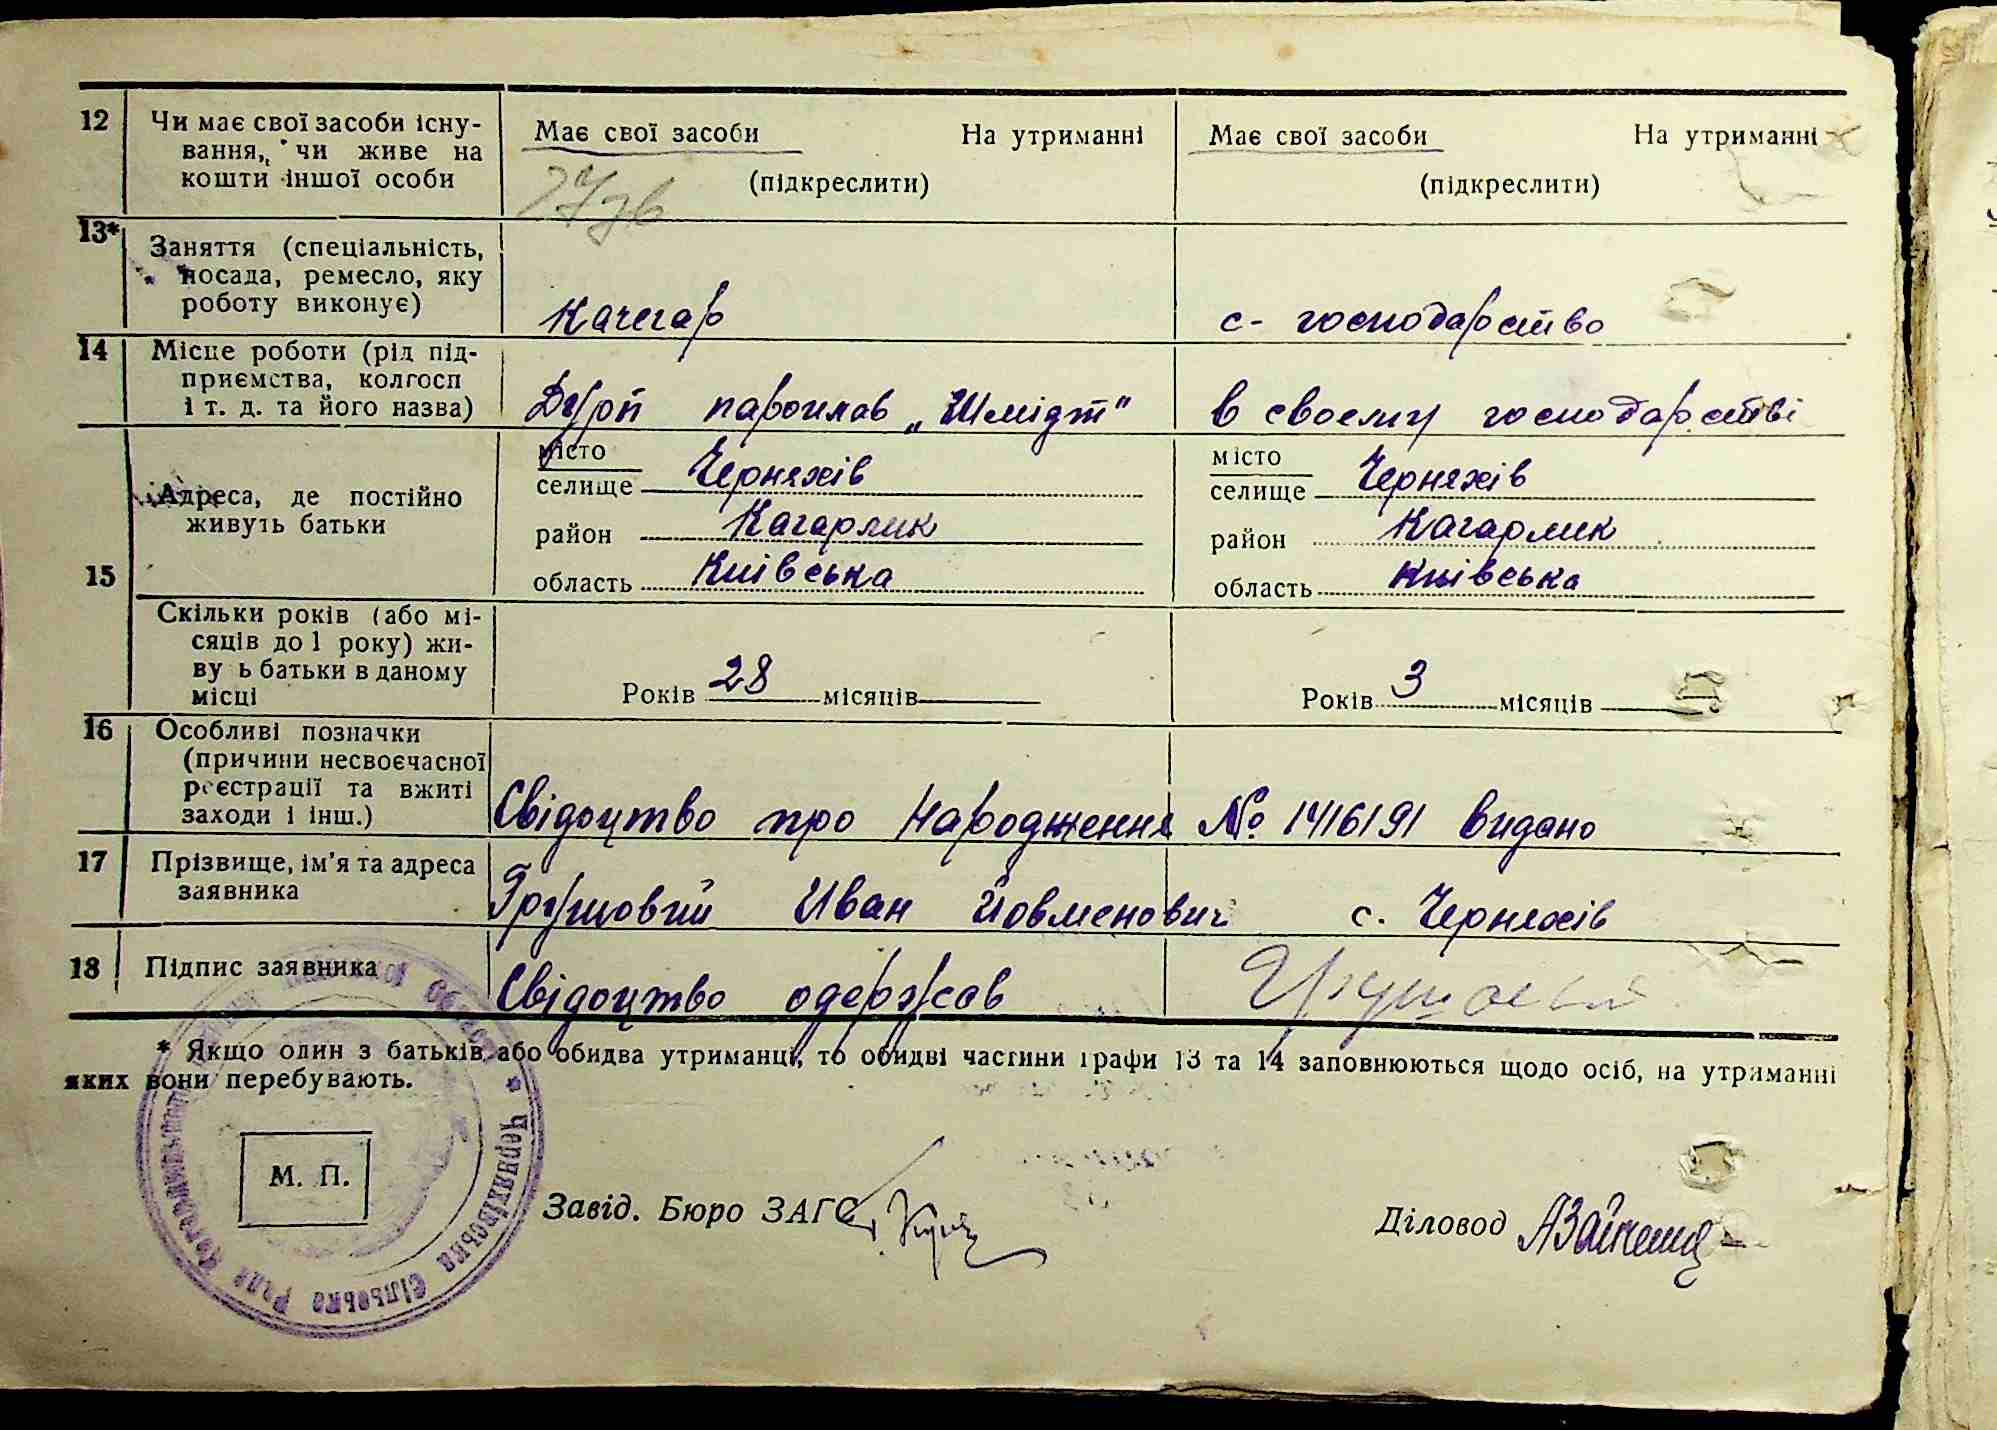 12 Чи має свої засоби існу-
вання, чи живе на
кошти іншої особи
Має свої засоби На утриманні
(підкреслити)
Має свої засоби На утриманні
(підкреслити)
13* Заняття (спеціальність,
посада, ремесло, яку
роботу виконує)
Качегар
с- господарство
14 Місце роботи (рід під-
приємства, колгосп
і т. д. та його назва)
пароплав „Шмідт"
в своєму господарстві
15 Адреса, де постійно
живуть батьки
місто
селище Черняхів
район Кагарлик
область Київська
місто
селище Черняхів
район Кагарлик
область Київська
Скільки років (або мі-
сяців до 1 року) жи-
ву ь батьки в даному
місці
Років 28 місяців
Років 3 місяців
16 Особливі позначки
(причини несвоєчасної
реєстрації та вжиті
заходи і інш.)
Свідоцтво про народження № 1416191 видано
17 Прізвище, ім'я та адреса
заявника
Грушовий Иван Йовменович с. Черняхів
18 Підпис заявника
Свідоцтво одержав Грушовий
* Якщо один з батьків або обидва утриманці, то обидві частини графи 13 та 14 заповнюються щодо осіб, на утриманні
яких вони перебувають.
М. П.
Завід. Бюро ЗАГС
Діловод
Черняхівська Сільська Рада